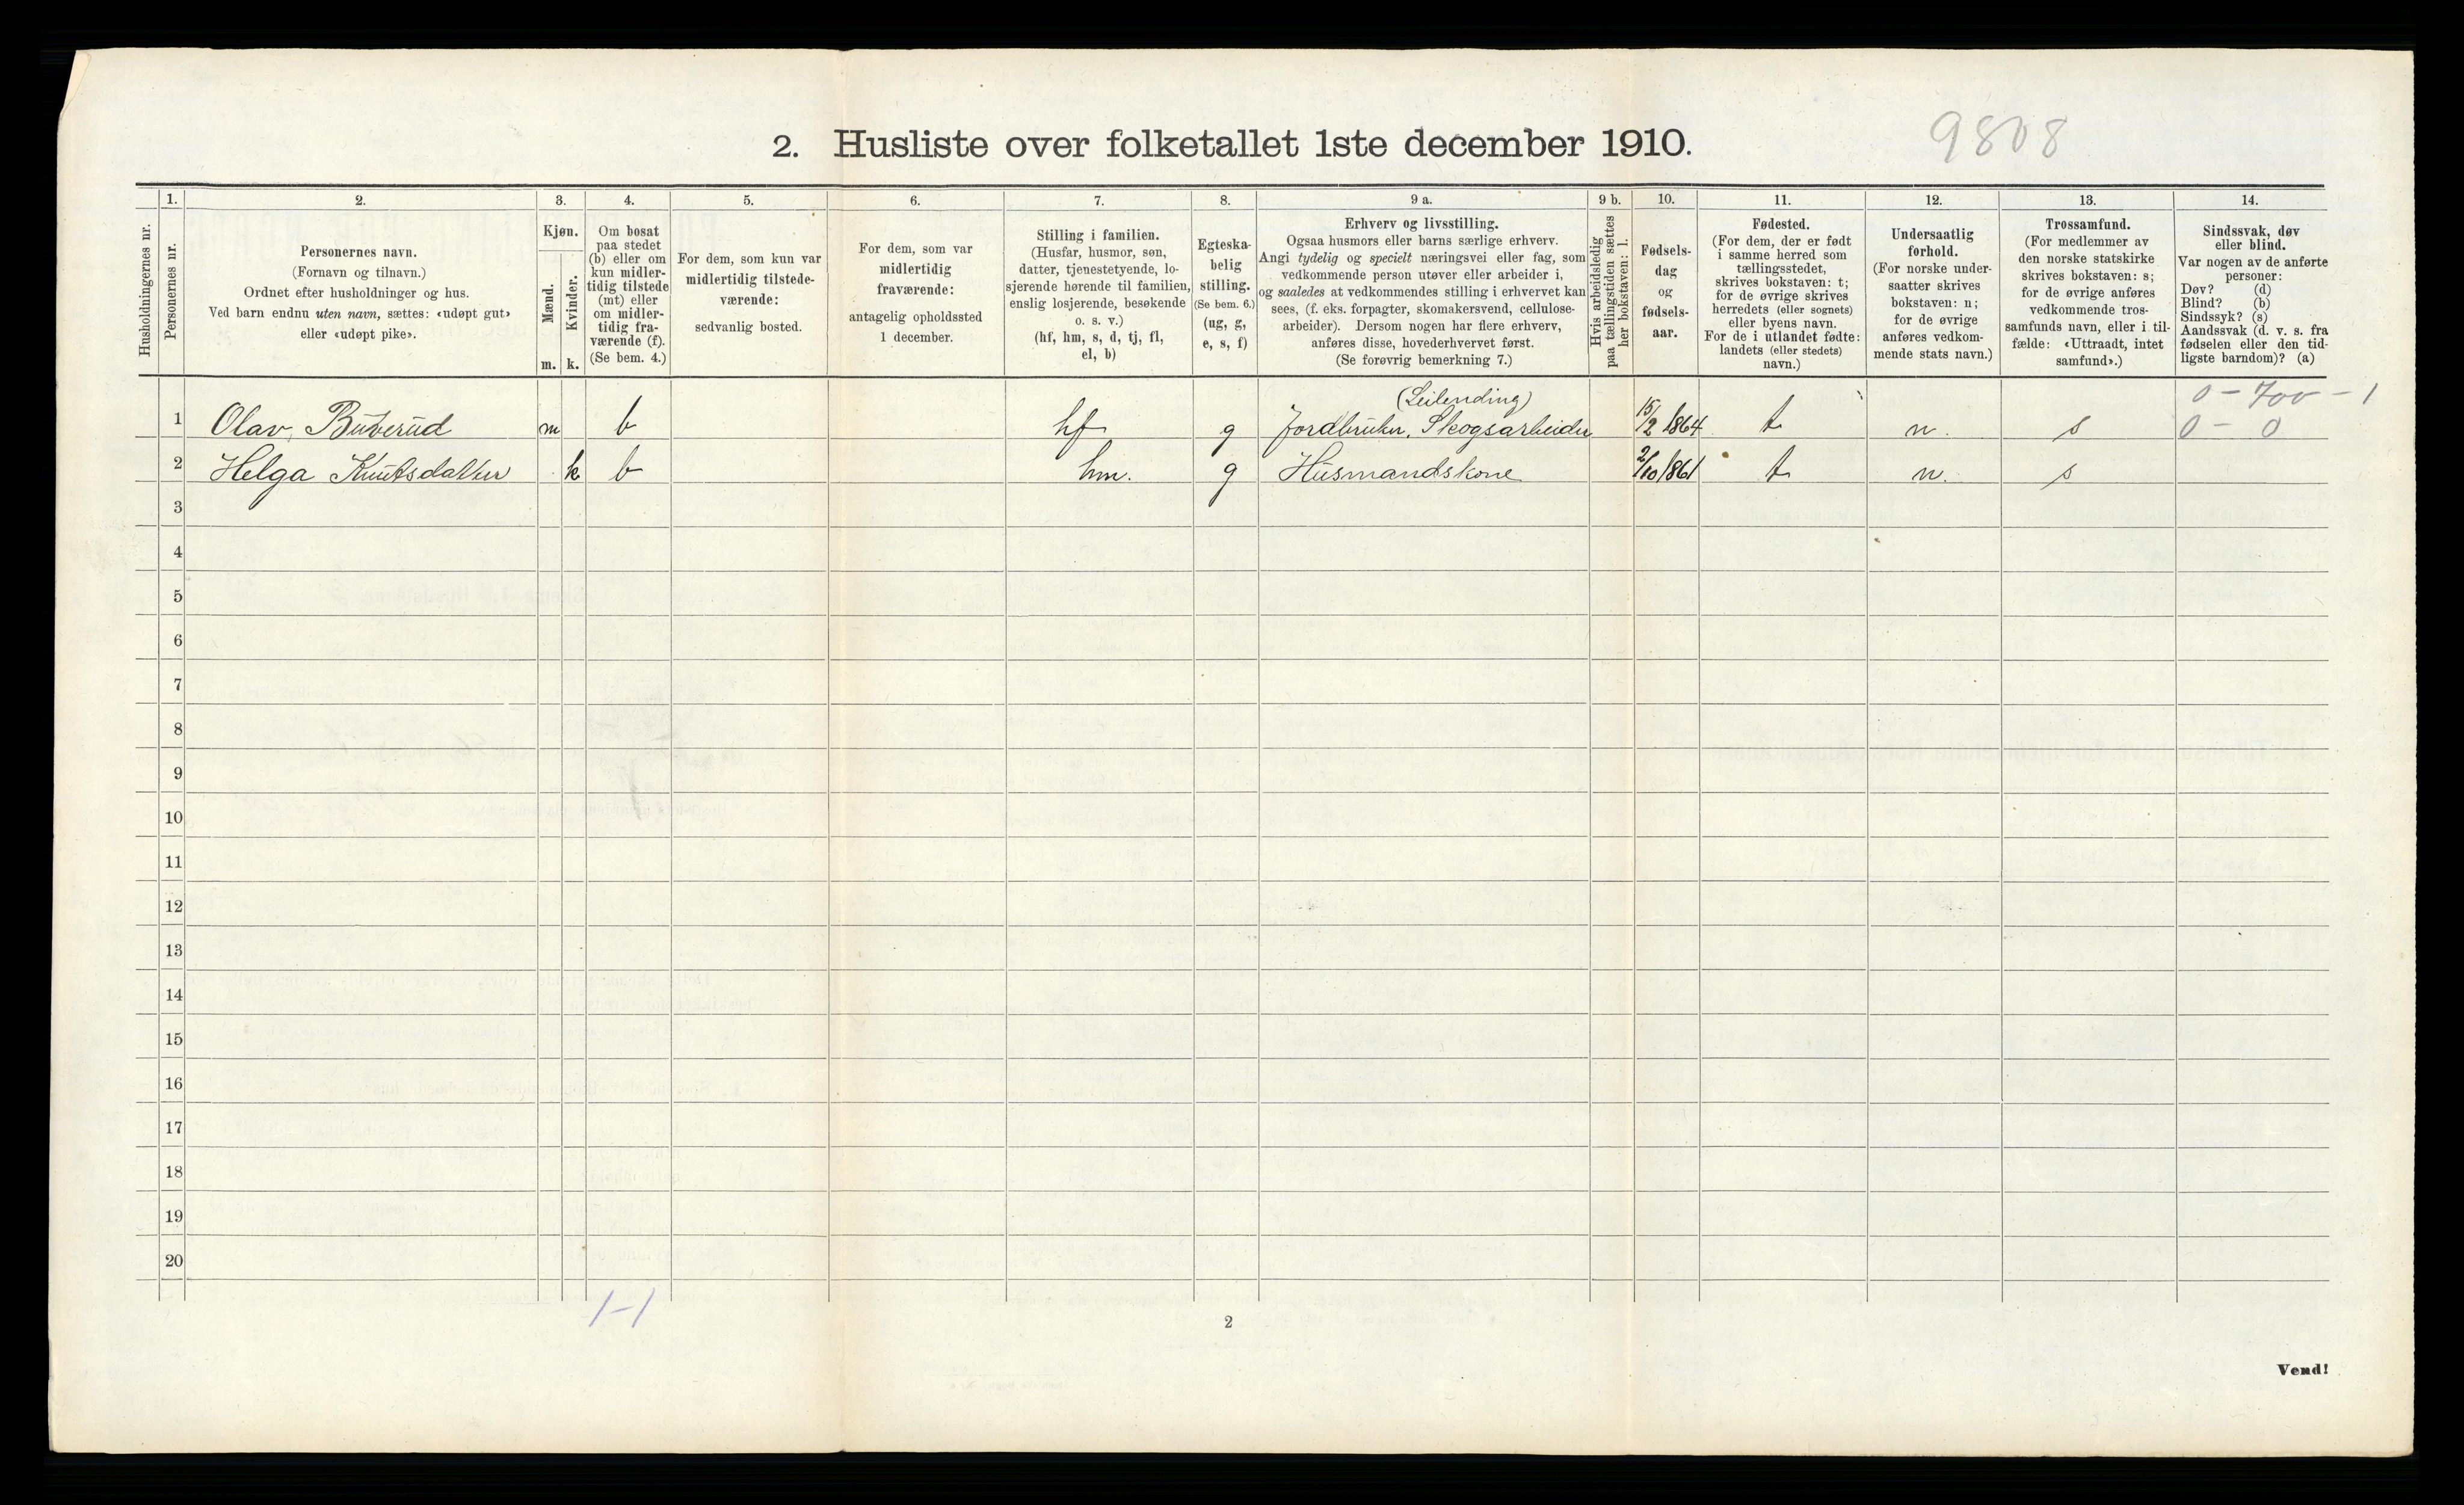 9808
2. Husliste over folketallet 1ste december 1910.
Husholdningernes nr.
1.
Personernes nr.
2.
Personernes navn.
(Fornavn og tilnavn.)
Ordnet efter husholdninger og hus.
Ved barn endnu uten navn, sættes: «udøpt gut»
eller «udøpt pike».
3.
Kjøn.
Mænd.
m.
Kvinder.
k.
4.
Om bosat
paa stedet
(b) eller om
kun midler-
tidig tilstede
(mt) eller
om midler-
tidig fra-
værende (f).
(Se bem. 4.)
5.
For dem, som kun var
midlertidig tilstede-
værende:
sedvanlig bosted.
6.
For dem, som var
midlertidig
fraværende:
antagelig opholdssted
1 december.
7.
Stilling i familien.
(Husfar, husmor, søn,
datter, tjenestetyende, lo-
sjerende hørende til familien,
enslig losjerende, besøkende
o. s. v.)
(hf, hm, s, d, tj, fl,
el, b)
8.
Egteska-
belig
stilling.
(Se bem. 6.)
(ug, g,
e, s, f)
9 a.
Erhverv og livsstilling.
Ogsaa husmors eller barns særlige erhverv.
Angi tydelig og specielt næringsvei eller fag, som
vedkommende person utøver eller arbeider i,
og saaledes at vedkommendes stilling i erhvervet kan
sees, (f. eks. forpagter, skomakersvend, cellulose-
arbeider). Dersom nogen har flere erhverv,
anføres disse, hovederhvervet først.
(Se forøvrig bemerkning 7.)
9 b.
Hvis arbeidsledig
paa tællingstiden sættes
her bokstaven: l.
10.
Fødsels-
dag
og
fødsels-
aar.
11.
Fødested.
(For dem, der er født
i samme herred som
tællingsstedet,
skrives bokstaven: t;
for de øvrige skrives
herredets (eller sognets)
eller byens navn.
For de i utlandet fødte:
landets (eller stedets)
navn.)
12.
Undersaatlig
forhold.
(For norske under-
saatter skrives
bokstaven: n;
for de øvrige
anføres vedkom-
mende stats navn.)
13.
Trossamfund.
(For medlemmer av
den norske statskirke
skrives bokstaven: s;
for de øvrige anføres
vedkommende tros-
samfunds navn, eller i til-
fælde: «Uttraadt, intet
samfund».)
14.
Sindssvak, døv
eller blind.
Var nogen av de anførte
personer:
Døv? (d)
Blind? (b)
Sindssyk? (s)
Aandssvak (d. v. s. fra
fødselen eller den tid-
ligste barndom)? (a)
(Leilending) 0 - 700 - 1
1 Olav Buverud m b hf g Jordbruker, Skogsarbeider 15/2 1864 t n. s 0 - 0
2 Helga Knutsdatter k b hm. g Husmandskone 2/10 1861 t n. s
3
4
5
6
7
8
9
10
11
12
13
14
15
16
17
18
19
20
1-1
2
Vend!